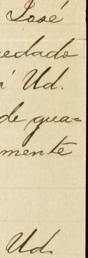 José
uedado
á Ud.
de gua=
mente
Ud.